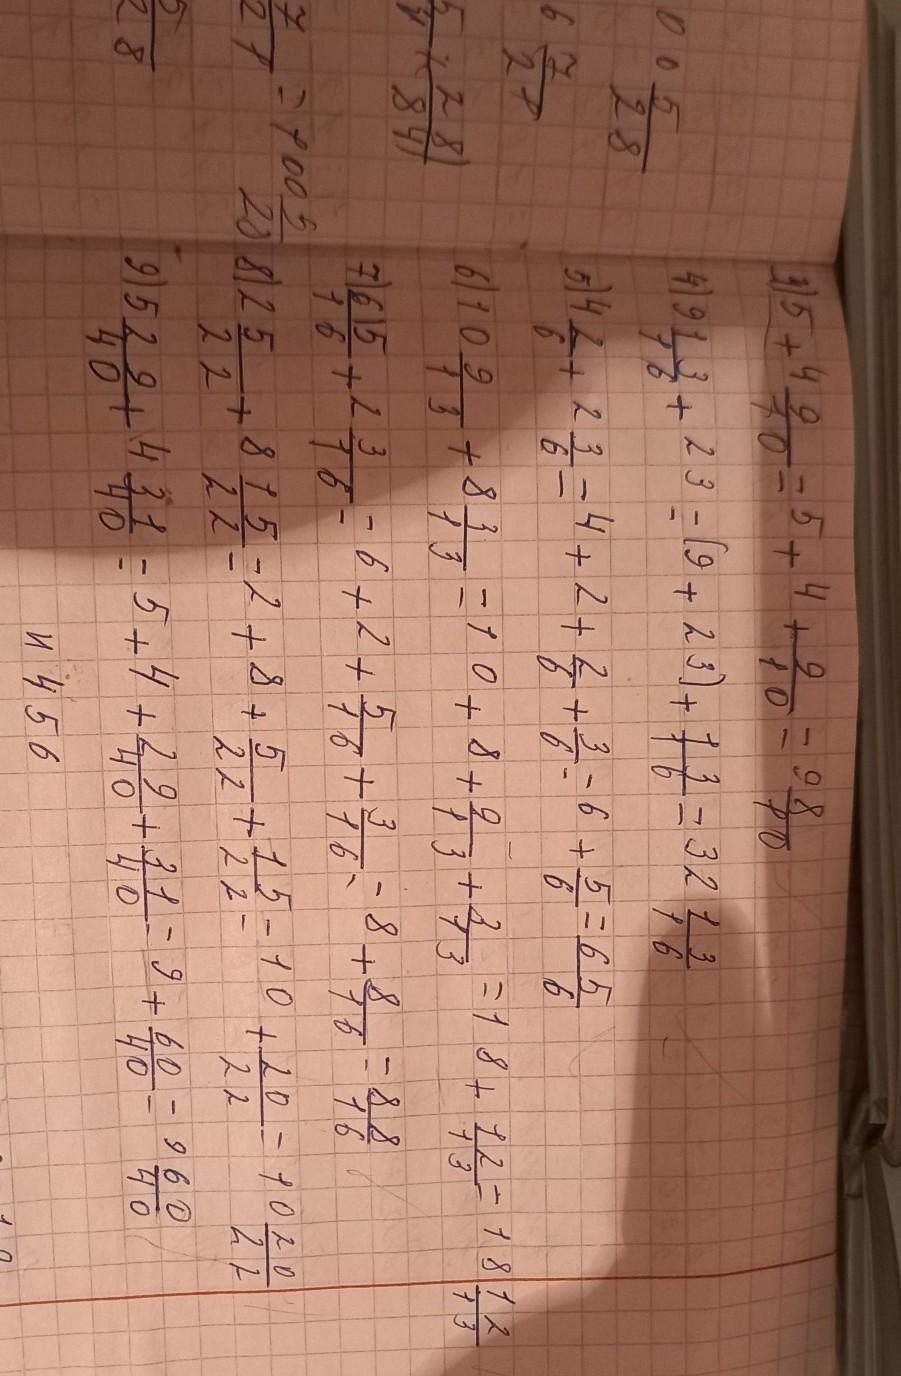 3) 5 + 4 9/10 = 5 + 4 + 9/10 = 9 8/10
4) 9 13/16 + 23 = (9 + 23) + 13/16 = 32 13/16
5) 4 2/6 + 2 3/6 = 4 + 2 + 2/6 + 3/6 = 6 + 5/6 = 6 5/6
6) 10 9/13 + 8 3/13 = 10 + 8 + 9/13 + 3/13 = 18 + 12/13 = 18 12/13
7) 6 5/16 + 2 3/16 = 6 + 2 + 5/16 + 3/16 = 8 + 8/16 = 8 8/16
8) 2 5/22 + 8 15/22 = 2 + 8 + 5/22 + 15/22 = 10 + 20/22 = 10 20/22
9) 5 29/40 + 4 31/40 = 5 + 4 + 29/40 + 31/40 = 9 + 60/40 = 9 60/40
и 456